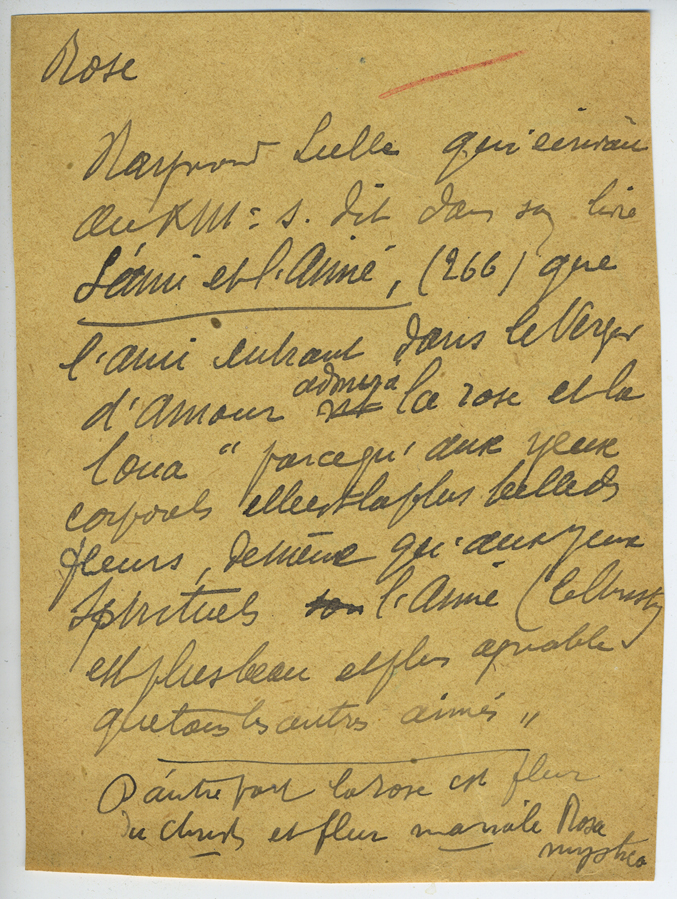 Rose
Raymond Lulle qui écrivait
au XIII= s. dit dans son livre
L'ami et l'Aimé, (266) que
l'ami entrant dans le Verger
d'Amour admira la rose et la
loua " parcequ' aux yeux
corporels elle est la plus belle des
fleurs, de même qu'aux yeux
spirituels l'Aimé (le Christ)
est plus beau et plus agréable
que tous les autres aimés "
D'autre part la rose est fleur
du Christ et fleur mariale Rosa
mystica